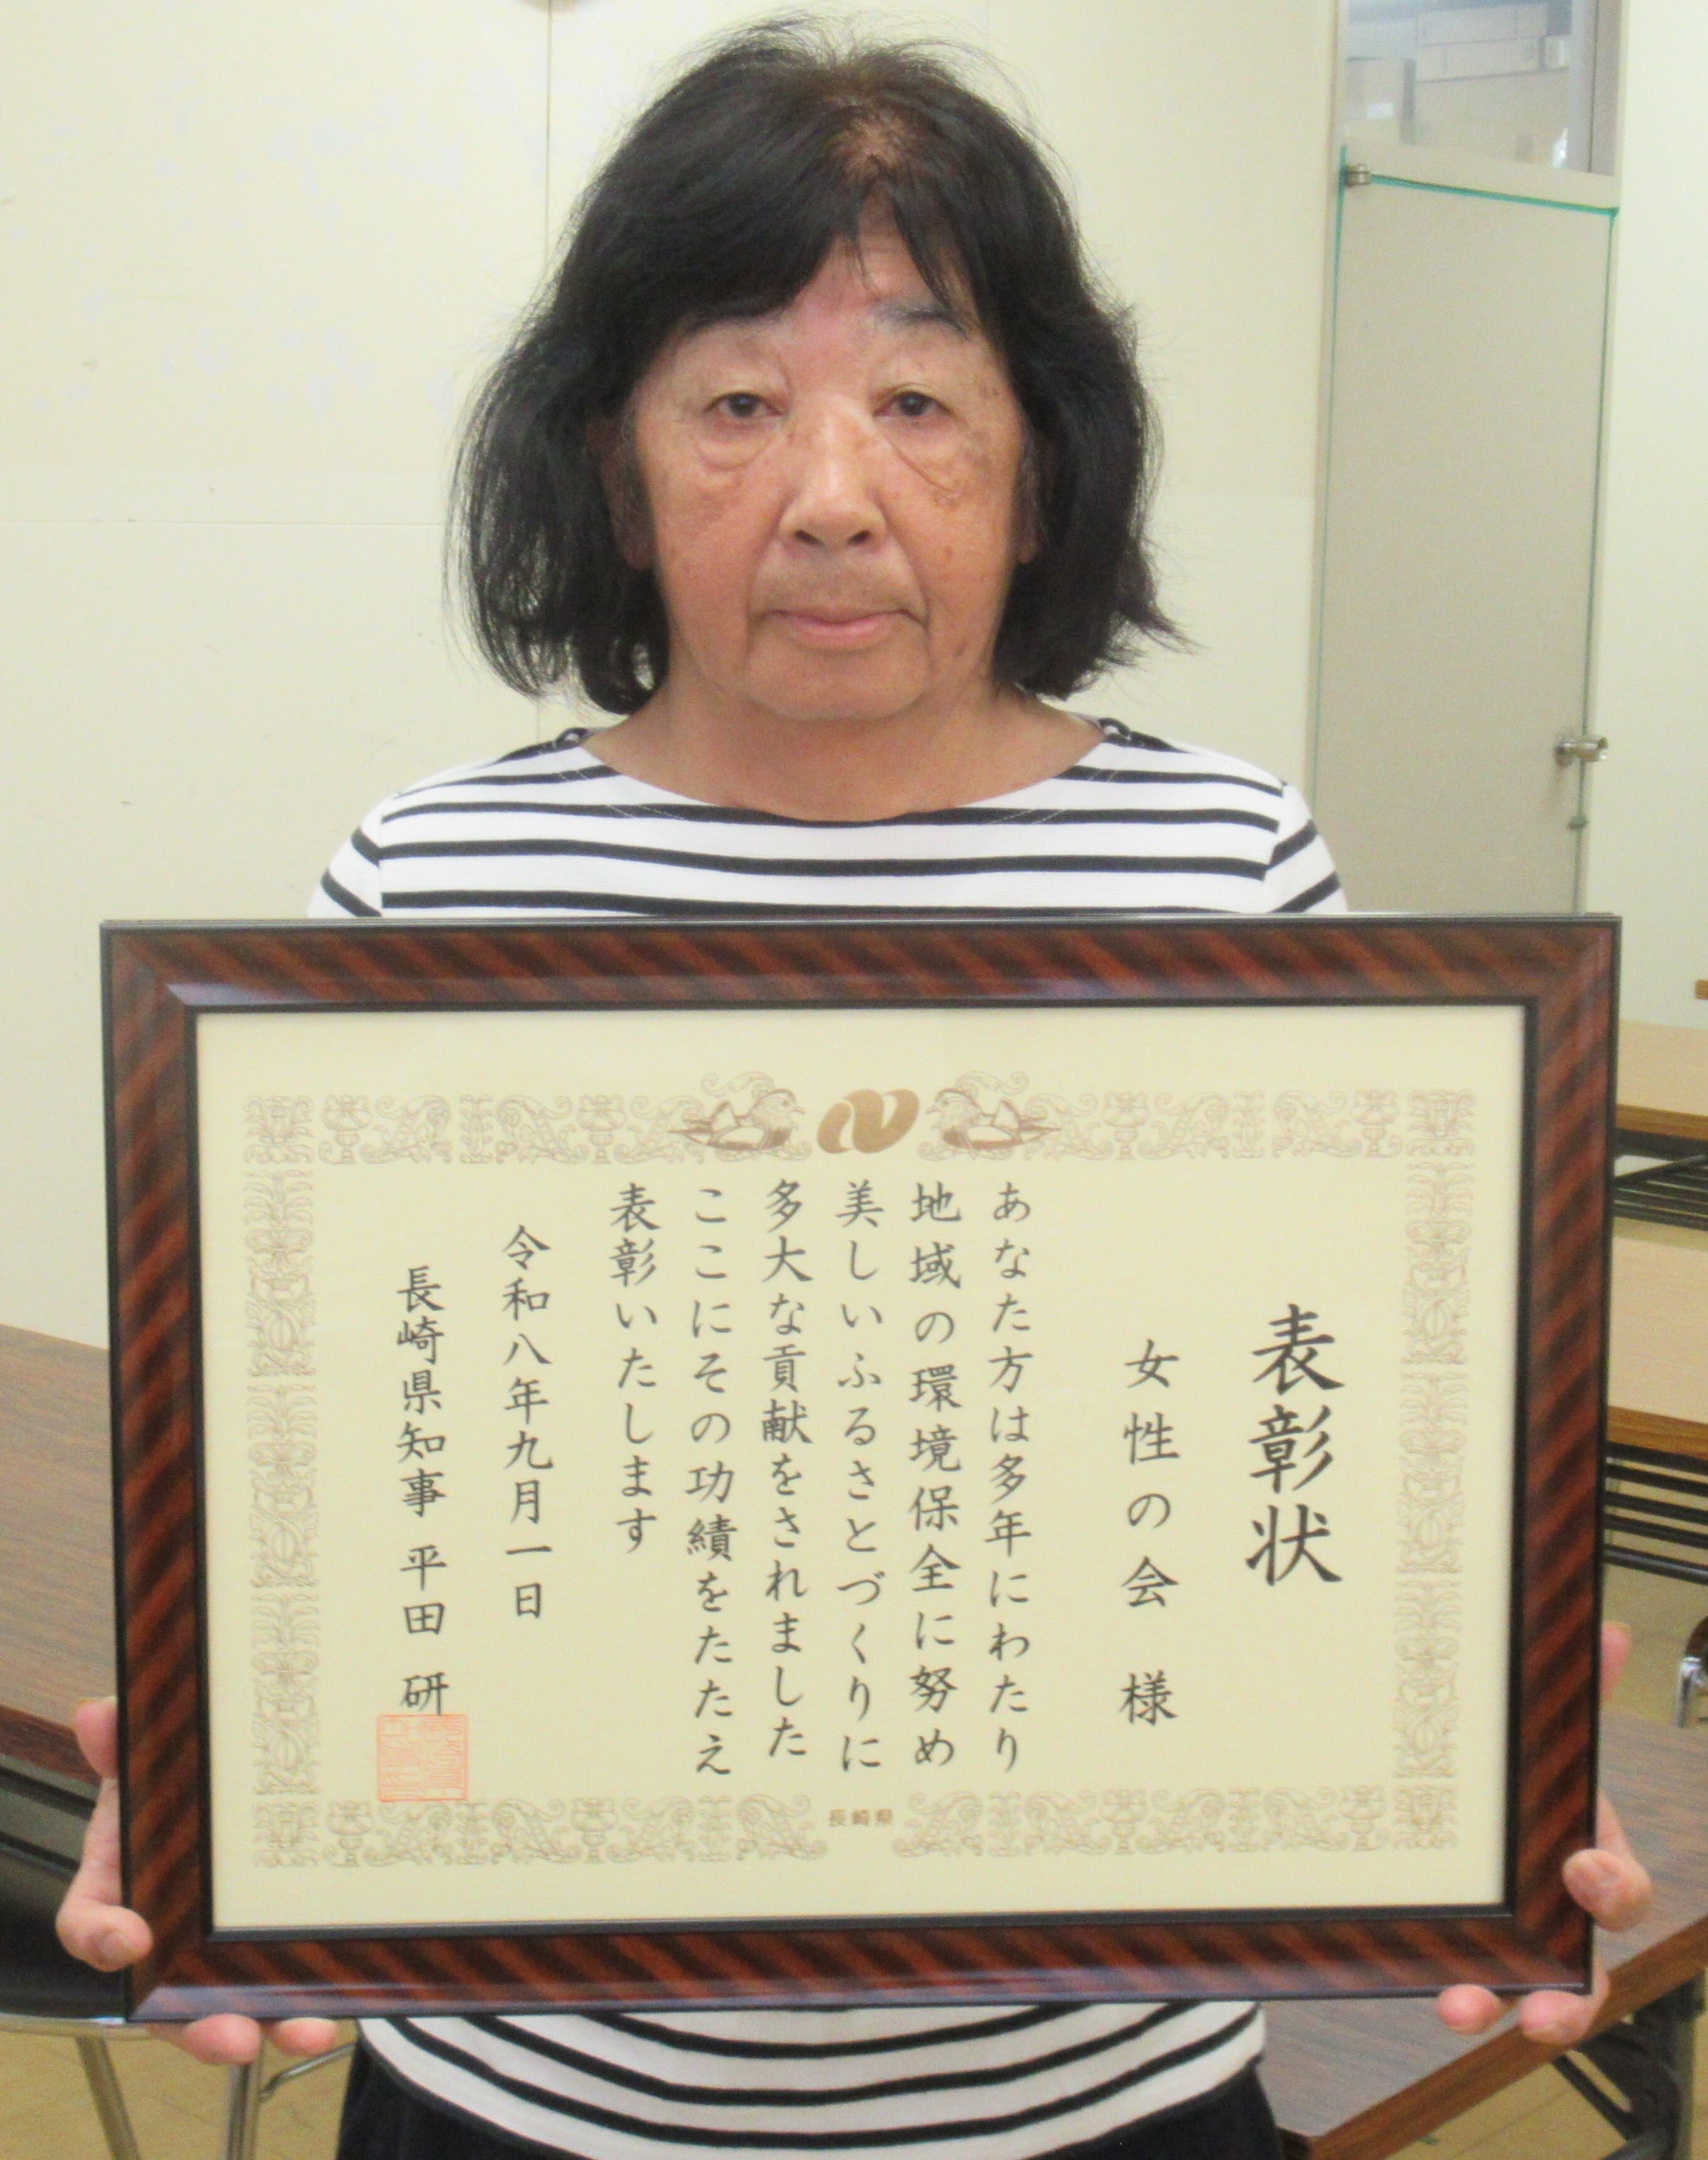 表彰状
女性の会 様
あなた方は多年にわたり
地域の環境保全に努め
美しいふるさとづくりに
多大な貢献をされました
ここにその功績をたたえ
表彰いたします
令和八年九月一日
長崎県知事 平田 研
長崎県